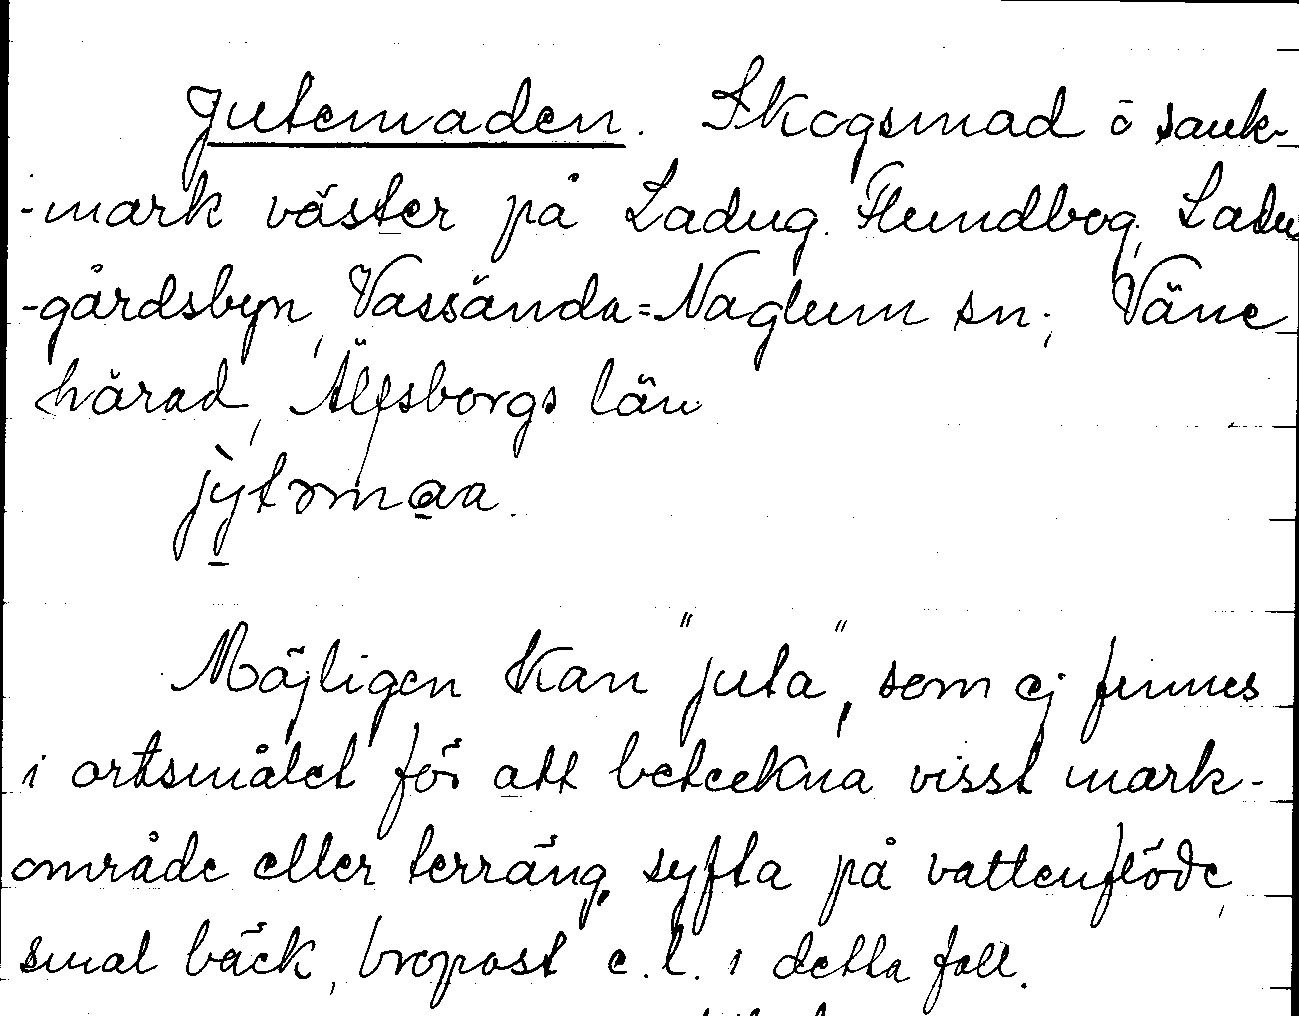 Jutemaden. Skogsmad ō sank-
-mark väster på Ladug. Flundbog, Ladu
-gårdsbyn, Vassända=Naglum sn., Väne
härad, Älfsborgs län
jỳtəmaa.
Möjligen kan "juta", som ej finnes
i ortsmålet för att beteckna visst mark-
område eller terräng, syfta på vattenflöde,
smal bäck, bropost e.l. i detta fall.